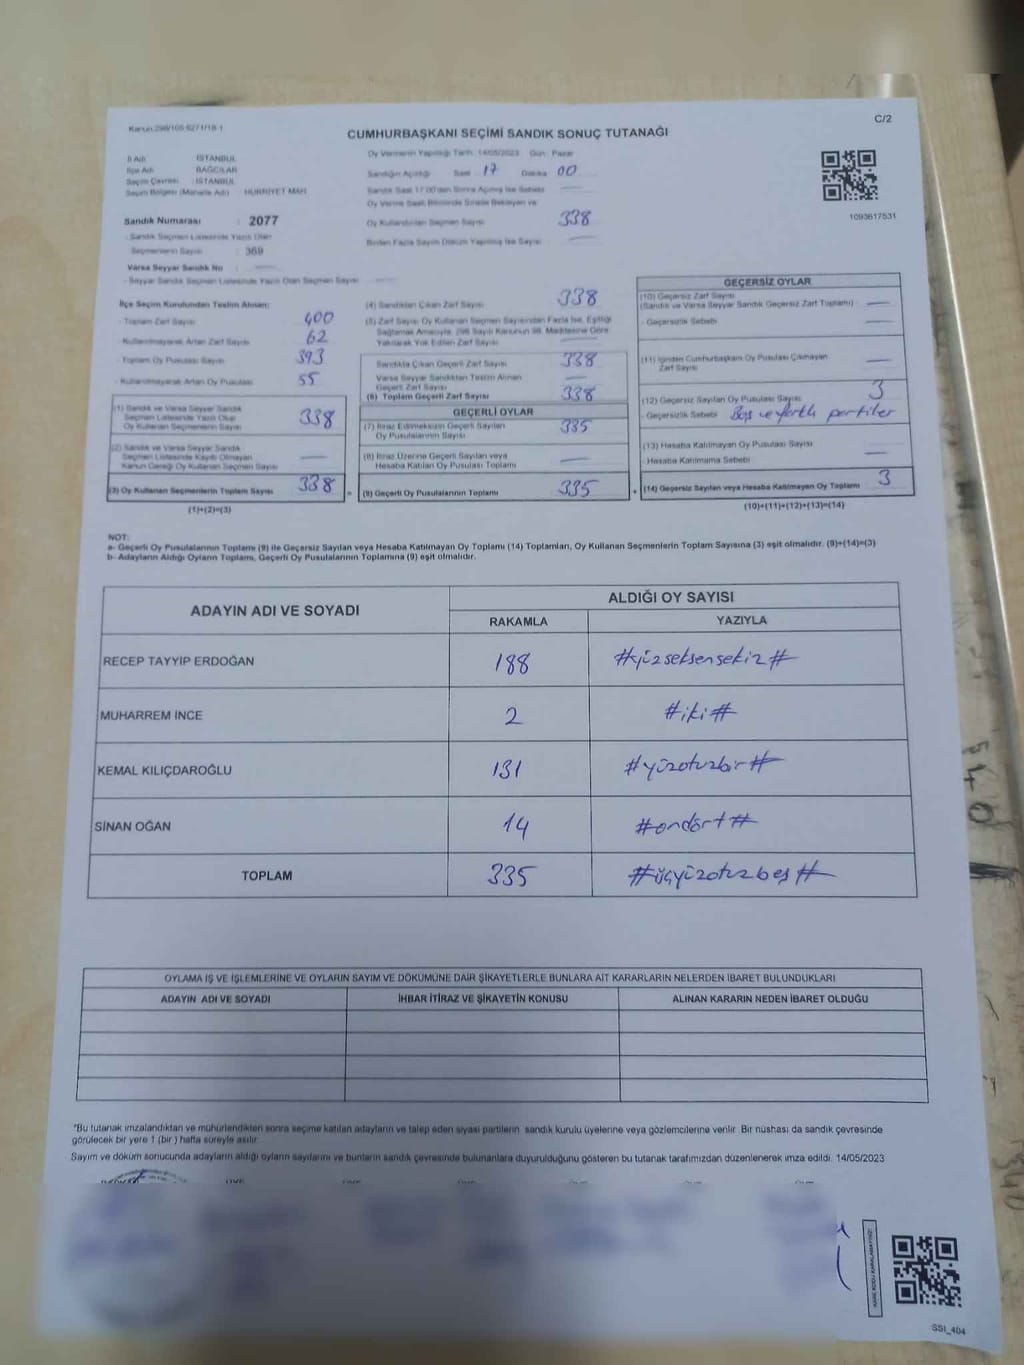 Kanun:298/105.6271/18-1
C/2
CUMHURBAŞKANI SEÇİMİ SANDIK SONUÇ TUTANAĞI
İl Adı : İSTANBUL
İlçe Adı : BAĞCILAR
Seçim Çevresi : İSTANBUL
Seçim Bölgesi (Mahalle Adı) : HÜRRİYET MAH
Sandık Numarası : 2077
- Sandık Seçmen Listesinde Yazılı Olan
Seçmenlerin Sayısı : 369
Varsa Seyyar Sandık No :
- Seyyar Sandık Seçmen Listesinde Yazılı Olan Seçmen Sayısı
Oy Vermenin Yapıldığı Tarih: 14/05/2023 Gün: Pazar
Sandığın Açıldığı Saat : 17 Dakika 00
Sandık Saat 17:00'den Sonra Açılmış İse Sebebi
Oy Verme Saati Bitiminde Sırada Bekleyen ve
Oy Kullandırılan Seçmen Sayısı 338
Birden Fazla Sayım Döküm Yapılmış İse Sayısı
1093617531
İlçe Seçim Kurulundan Teslim Alınan:
- Toplam Zarf Sayısı 400
- Kullanılmayarak Artan Zarf Sayısı 62
- Toplam Oy Pusulası Sayısı 393
- Kullanılmayarak Artan Oy Pusulası 55
(1) Sandık ve Varsa Seyyar Sandık
Seçmen Listesinde Yazılı Olup
Oy Kullanan Seçmenlerin Sayısı 338
(2) Sandık ve Varsa Seyyar Sandık
Seçmen Listesinde Kayıtlı Olmayan
Kanun Gereği Oy Kullanan Seçmen Sayısı
(3) Oy Kullanan Seçmenlerin Toplam Sayısı 338
(1)+(2)=(3)
(4) Sandıktan Çıkan Zarf Sayısı 338
(5) Zarf Sayısı Oy Kullanan Seçmen Sayısından Fazla İse, Eşitliği
Sağlamak Amacıyla, 298 Sayılı Kanunun 98. Maddesine Göre
Yakılarak Yok Edilen Zarf Sayısı
Sandıkta Çıkan Geçerli Zarf Sayısı 338
Varsa Seyyar Sandıktan Teslim Alınan
Geçerli Zarf Sayısı
(6) Toplam Geçerli Zarf Sayısı 338
GEÇERLİ OYLAR
(7) İtiraz Edilmeksizin Geçerli Sayılan
Oy Pusulalarının Sayısı 335
(8) İtiraz Üzerine Geçerli Sayılan veya
Hesaba Katılan Oy Pusulası Toplamı
= (9) Geçerli Oy Pusulalarının Toplamı 335
GEÇERSİZ OYLAR
(10) Geçersiz Zarf Sayısı
(Sandık ve Varsa Seyyar Sandık Geçersiz Zarf Toplamı)
- Geçersizlik Sebebi
(11) İçinden Cumhurbaşkanı Oy Pusulası Çıkmayan
Zarf Sayısı
(12) Geçersiz Sayılan Oy Pusulası Sayısı 3
- Geçersizlik Sebebi Boş ve farklı partiler
(13) Hesaba Katılmayan Oy Pusulası Sayısı
- Hesaba Katılmama Sebebi
+ (14) Geçersiz Sayılan veya Hesaba Katılmayan Oy Toplamı 3
(10)+(11)+(12)+(13)=(14)
NOT:
a- Geçerli Oy Pusulalarının Toplamı (9) ile Geçersiz Sayılan veya Hesaba Katılmayan Oy Toplamı (14) Toplamları, Oy Kullanan Seçmenlerin Toplam Sayısına (3) eşit olmalıdır. (9)+(14)=(3)
b- Adayların Aldığı Oyların Toplamı, Geçerli Oy Pusulalarının Toplamına (9) eşit olmalıdır.
ADAYIN ADI VE SOYADI
ALDIĞI OY SAYISI
RAKAMLA YAZIYLA
RECEP TAYYİP ERDOĞAN 188 #yüzseksensekiz#
MUHARREM İNCE 2 #iki#
KEMAL KILIÇDAROĞLU 131 #yüzotuzbir#
SİNAN OĞAN 14 #ondört#
TOPLAM 335 #üçyüzotuzbeş#
OYLAMA İŞ VE İŞLEMLERİNE VE OYLARIN SAYIM VE DÖKÜMÜNE DAİR ŞİKAYETLERLE BUNLARA AİT KARARLARIN NELERDEN İBARET BULUNDUKLARI
ADAYIN ADI VE SOYADI İHBAR İTİRAZ VE ŞİKAYETİN KONUSU ALINAN KARARIN NEDEN İBARET OLDUĞU
*Bu tutanak imzalandıktan ve mühürlendikten sonra seçime katılan adayların ve talep eden siyasi partilerin sandık kurulu üyelerine veya gözlemcilerine verilir. Bir nüshası da sandık çevresinde
görülecek bir yere 1 (bir) hafta süreyle asılır.
Sayım ve döküm sonucunda adayların aldığı oyların sayılarını ve bunların sandık çevresinde bulunanlara duyurulduğunu gösteren bu tutanak tarafımızdan düzenlenerek imza edildi. 14/05/2023
SSI_404